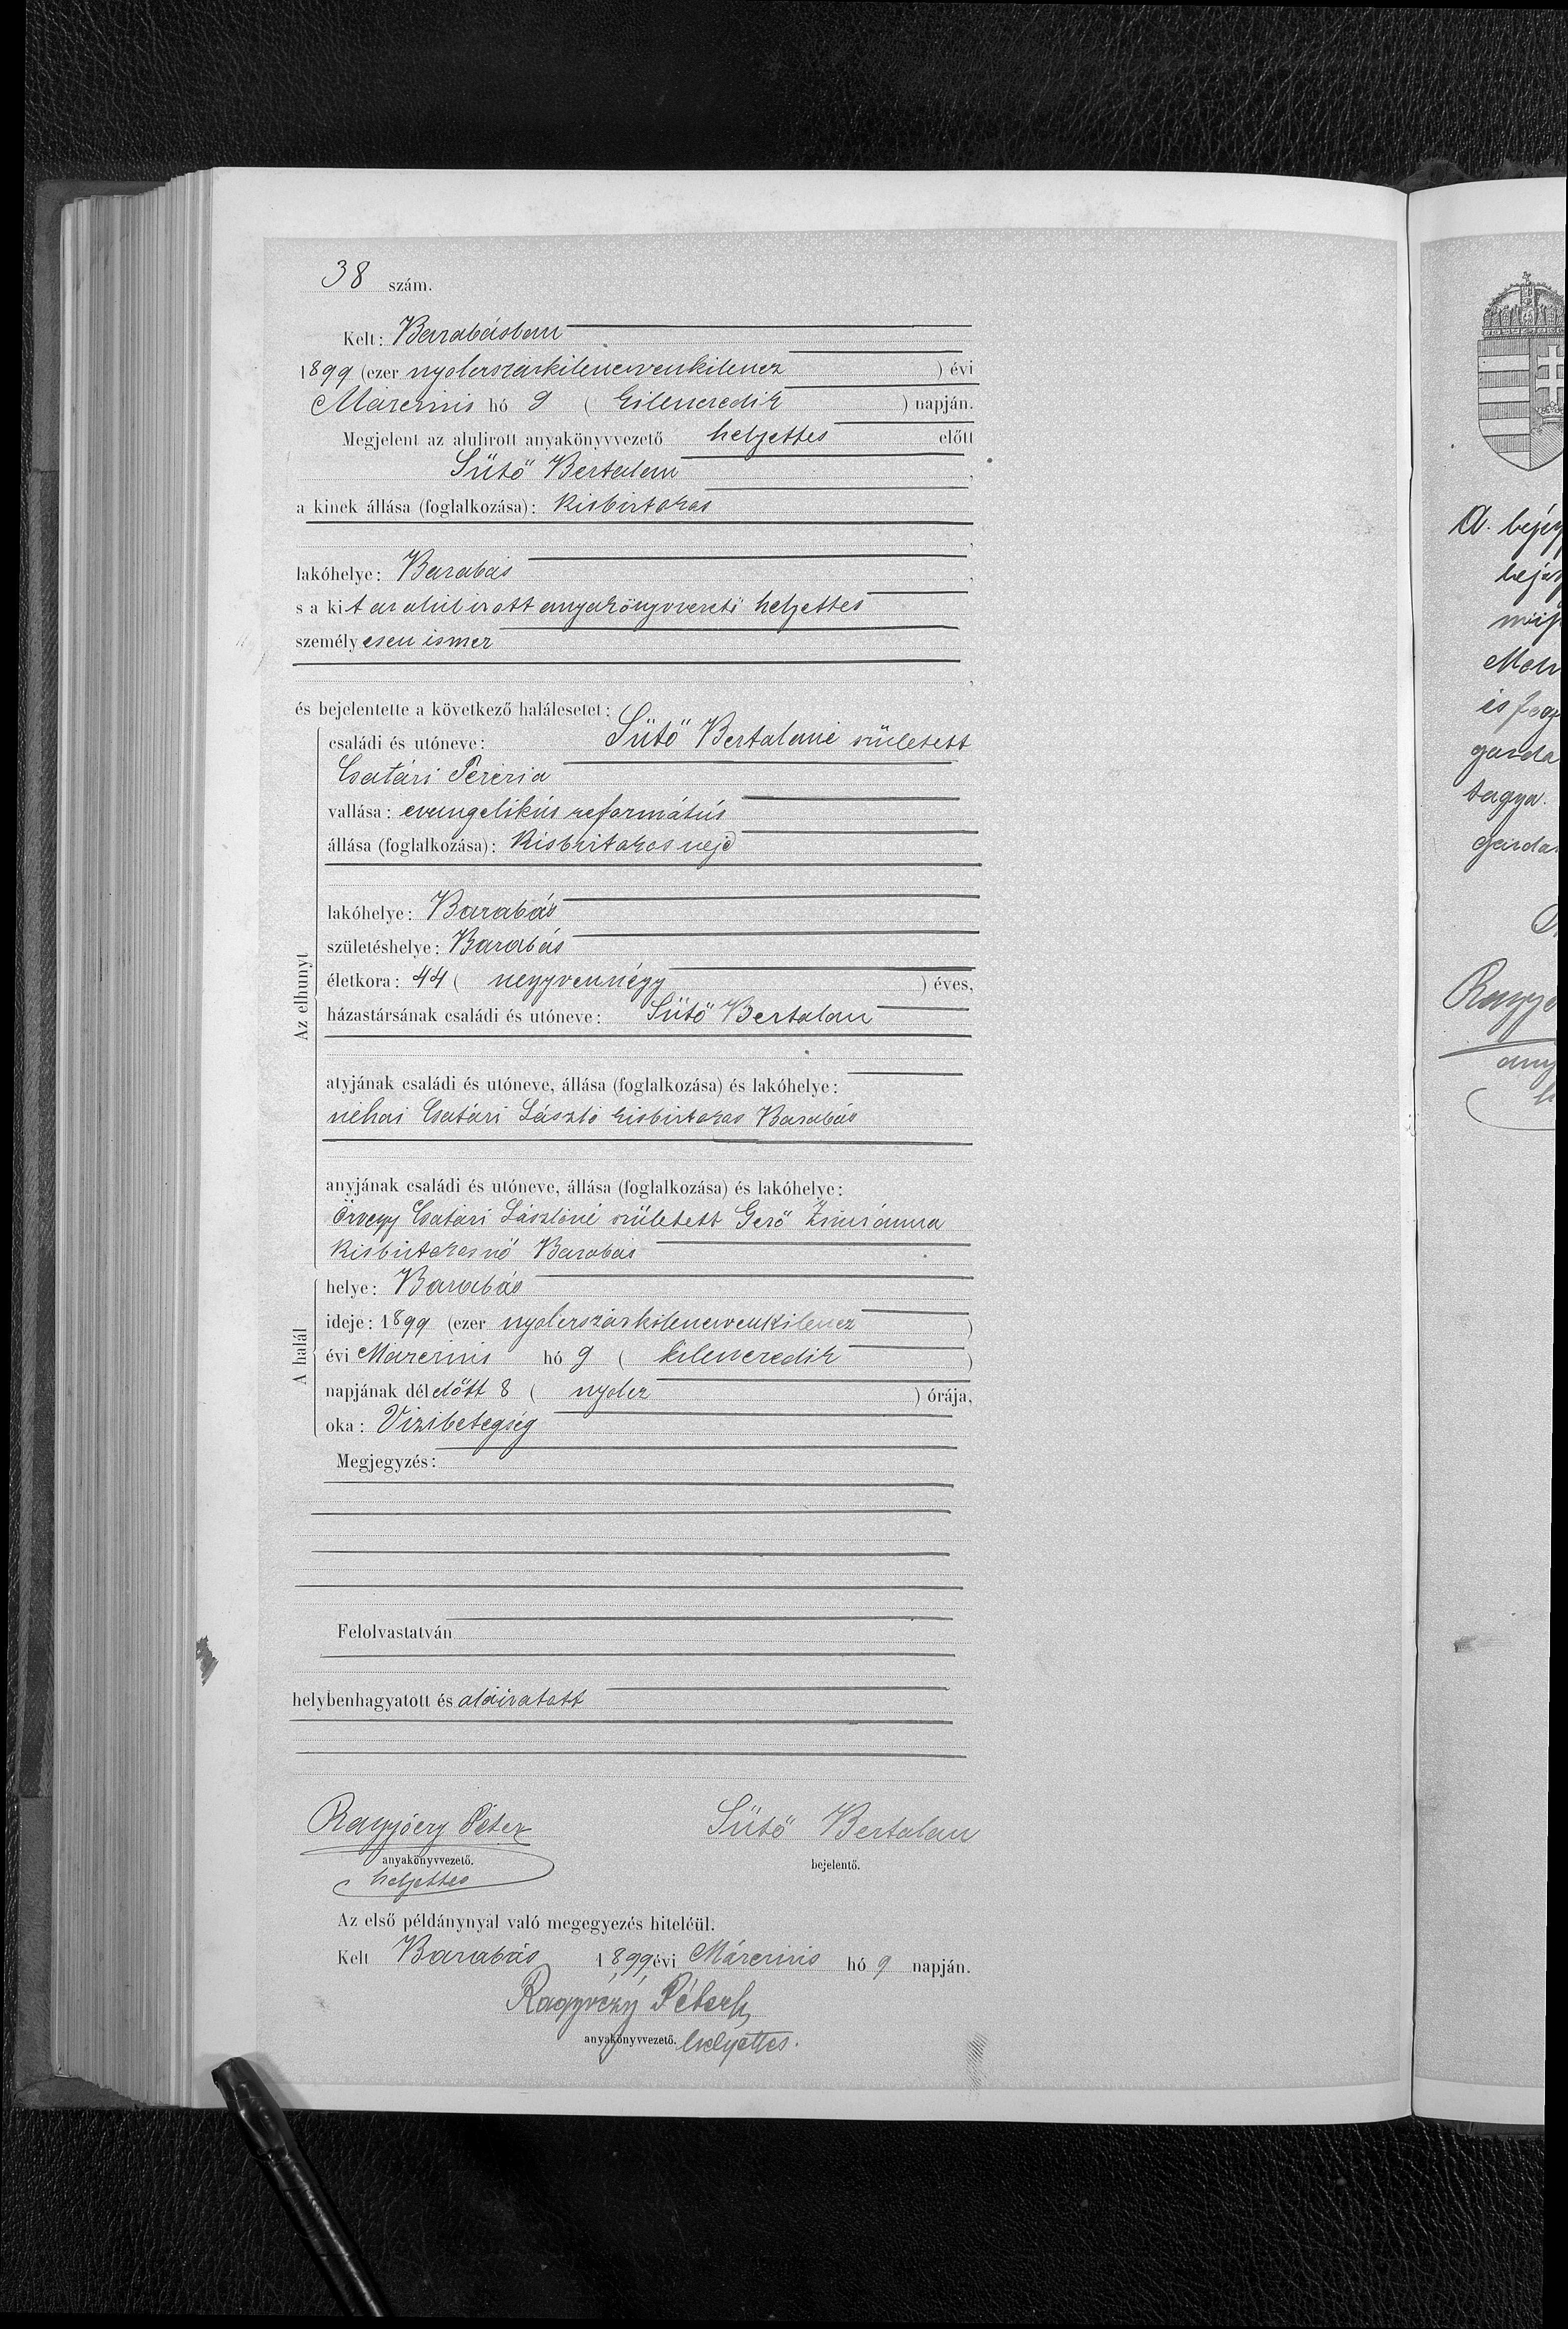 38 szám.
Kelt: Barabásban
1899 (ezer nyolczszázkilenczvenkilencz) évi
Márczius hó 9 (kilenczedik) napján.
Megjelent az alulirott anyakönyvvezető helyettes előtt
Sütő Bertalan,
a kinek állása (foglalkozása): Kisbirtokos
,
lakóhelye: Barabás,
s a kit az alulirott anyakönyvvezető helyettes
személyesen ismer
,
és bejelentette a következő halálesetet:
Az elhunyt
családi és utóneve: Sütő Bertalané született
Csatári Terézia
vallása: evangelikús református
állása (foglalkozása): Kisbirtokos neje
lakóhelye: Barabás
születéshelye: Barabás
életkora: 44 (negyvennégy) éves,
házastársának családi és utóneve: Sütő Bertalan
atyjának családi és utóneve, állása (foglalkozása) és lakóhelye:
néhai Csatári László kisbirtokos Barabás
anyjának családi és utóneve, állása (foglalkozása) és lakóhelye:
Özvegy Csatári Lászlóné született Gerő Zsuzsánna
Kisbirtokosnő Barabás
A halál
helye: Barabás
ideje: 1899 (ezer nyolczszázkilenczvenkilencz)
évi Márczius hó 9 (kilenczedik)
napjának délelőtt 8 (nyolcz) órája,
oka: Vizibetegség
Megjegyzés:
Felolvastatván
helybenhagyatott és aláiratott
Péter
Sütő Bertalan
anyakönyvvezető.
bejelentő.
helyettes
Az első példánynyal való megegyezés hiteléül.
Kelt Barabás 1899 évi Márczius hó 9 napján.
Péter
anyakönyvvezető. helyettes.
A.
garda
tagya.